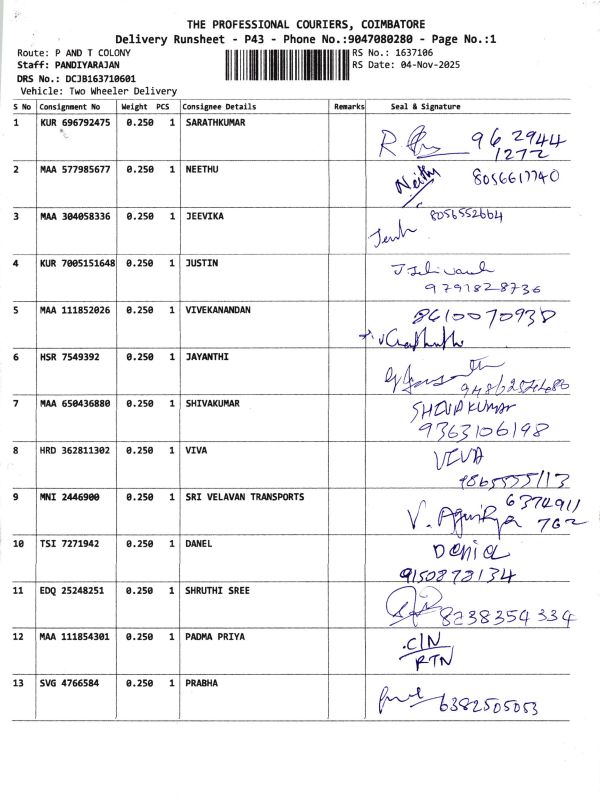 THE PROFESSIONAL COURIERS, COIMBATORE
Delivery Runsheet - P43 - Phone No.:9047080280 - Page No.:1
Route: P AND T COLONY RS No.: 1637106
Staff: PANDIYARAJAN RS Date: 04-Nov-2025
DRS No.: DCJB163710601
Vehicle: Two Wheeler Delivery
S No Consignment No Weight PCS Consignee Details Remarks Seal & Signature
1 KUR 696792475 0.250 1 SARATHKUMAR 96 2944
1272
2 MAA 577985677 0.250 1 NEETHU Neithu 8056617740
3 MAA 304058336 0.250 1 JEEVIKA 8056552664
4 KUR 7005151648 0.250 1 JUSTIN
9791828736
5 MAA 111852026 0.250 1 VIVEKANANDAN 8610070938
6 HSR 7549392 0.250 1 JAYANTHI
7 MAA 650436880 0.250 1 SHIVAKUMAR SHIVAKUMAR
9363106198
8 HRD 362811302 0.250 1 VIVA VIVA
9865555113
9 MNI 2446900 0.250 1 SRI VELAVAN TRANSPORTS 6374911
V. 762
10 TSI 7271942 0.250 1 DANEL Daniel
9150873134
11 EDQ 25248251 0.250 1 SHRUTHI SREE 8238354334
12 MAA 111854301 0.250 1 PADMA PRIYA .C/N
RTN
13 SVG 4766584 0.250 1 PRABHA 6382505053